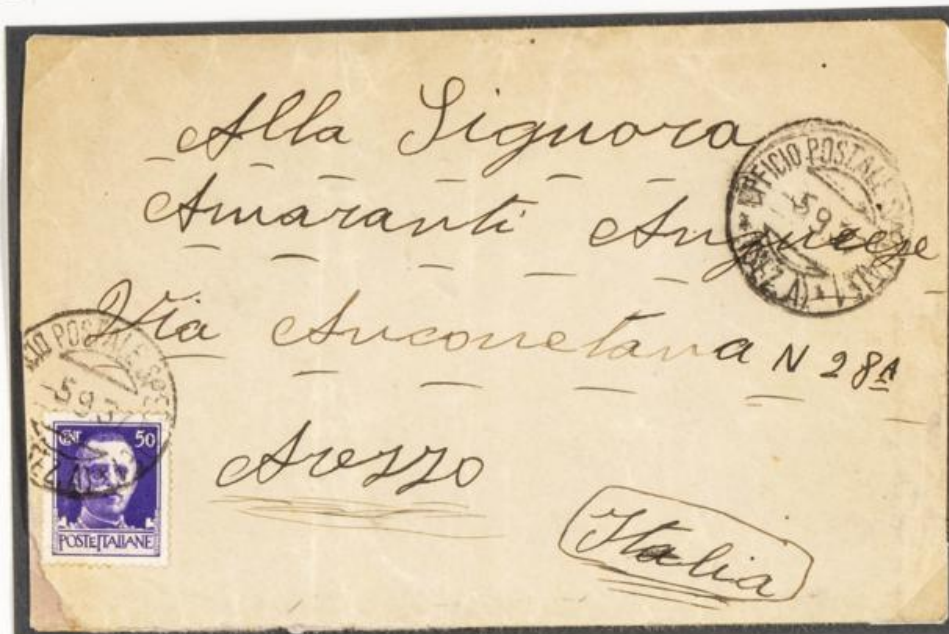 Alla Signora
Amaranti
Via Anconetana N 28A
Arezzo
Italia
UFFICIO POSTALE SPECIALE
5 9 3
UFFICIO POSTALE SPECIALE
5 9 3
CENT 50
POSTE ITALIANE